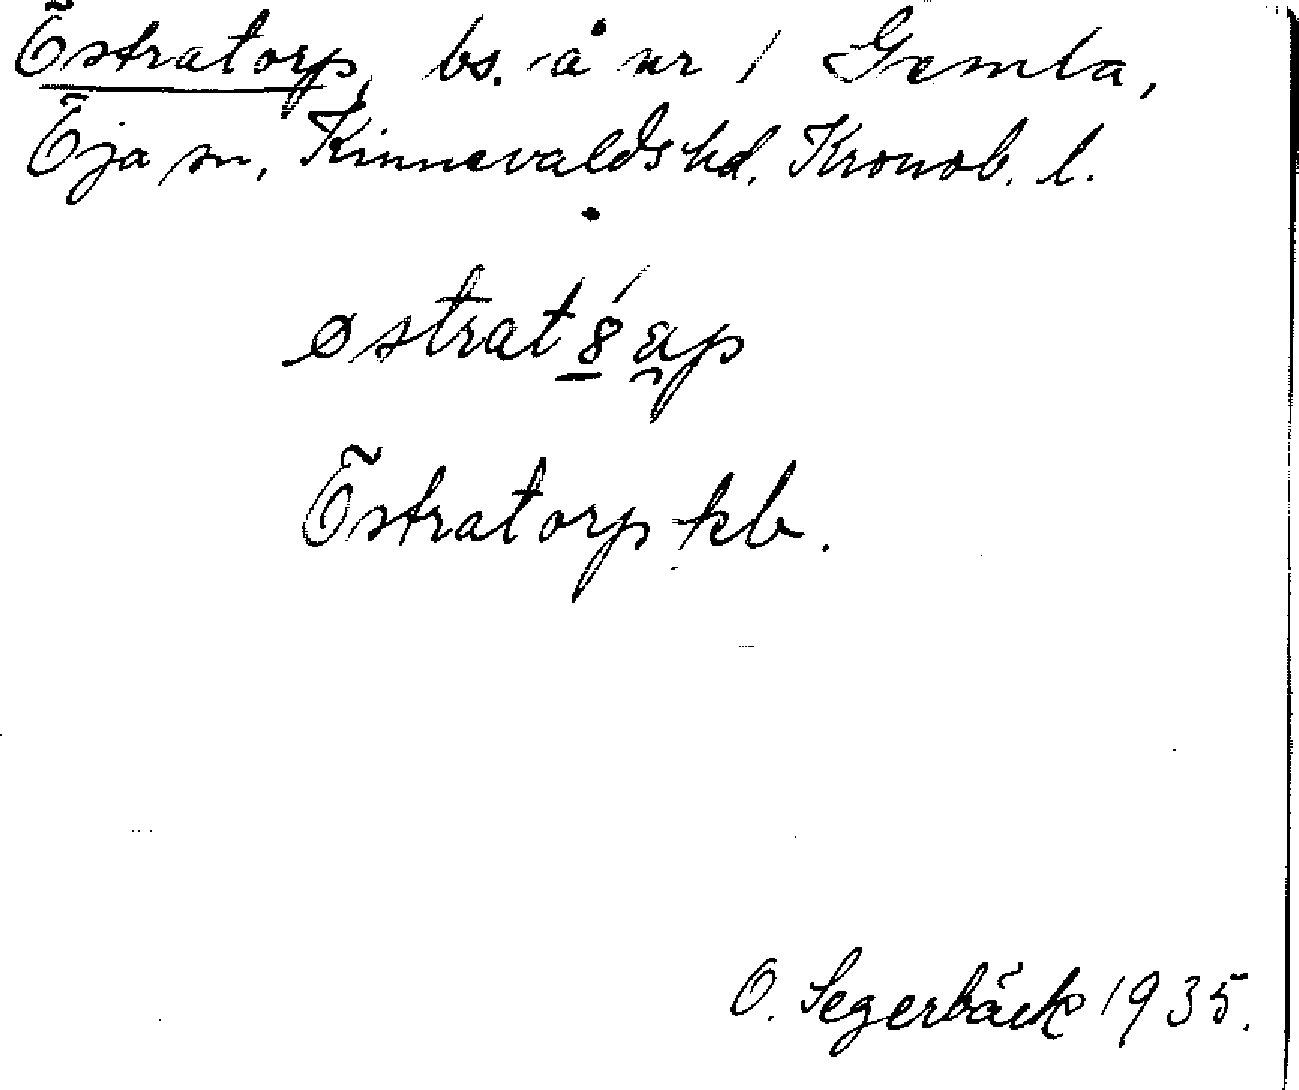 Östratorp, bs. å nr 1 Gemla,
Öja sn, Kinnevalds hd. Kronob. l.
Östratorp kb.
O. Segerbäck 1935.